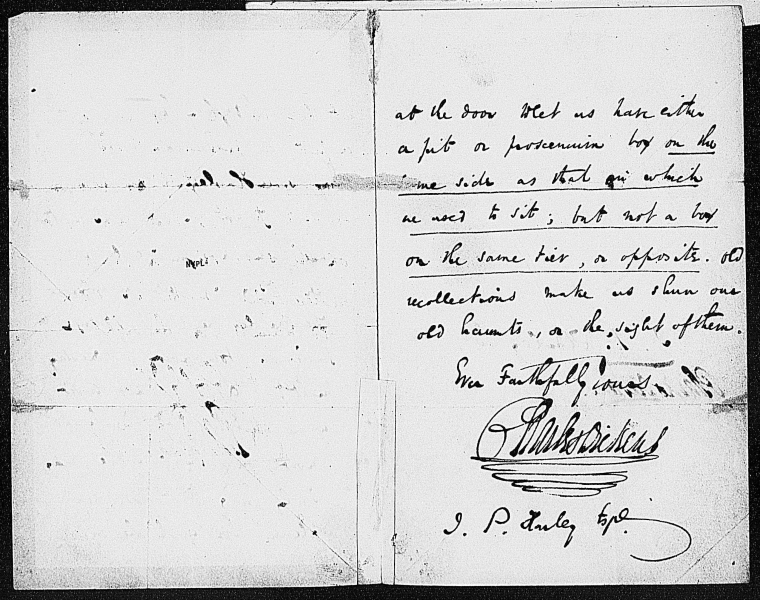 NYPL
at the door let us have either
a pit or proscenium box on the
same side as that in which
we used to sit; but not a box
on the same tier, or opposite. Old
recollections make us shun our
old haunts, or the sight of them.
Ever Faithfully Yours
Charles Dickens
J. P. Harley Esqre.